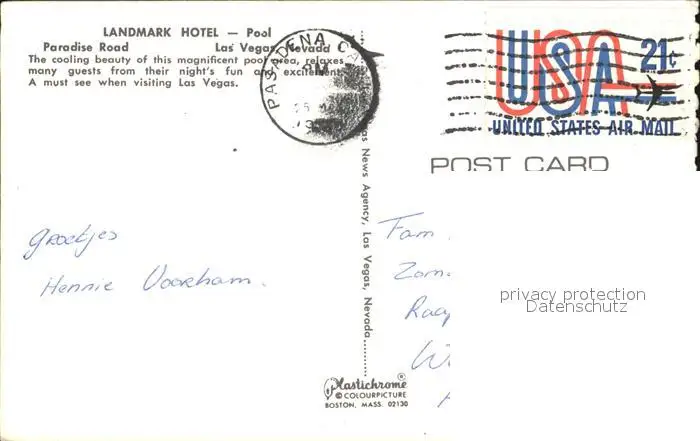 LANDMARK HOTEL — Pool
Paradise Road Las Vegas, Nevada
The cooling beauty of this magnificent pool area, relaxes
many guests from their night's fun and excitement.
A must see when visiting Las Vegas.
PASADENA CA
PM
USA 21¢
UNITED STATES AIR MAIL
POST CARD
News Agency, Las Vegas, Nevada
groetjes
Hennie Voorham.
Fam.
privacy protection
Datenschutz
Plastichrome®
© COLOURPICTURE
BOSTON, MASS. 02130